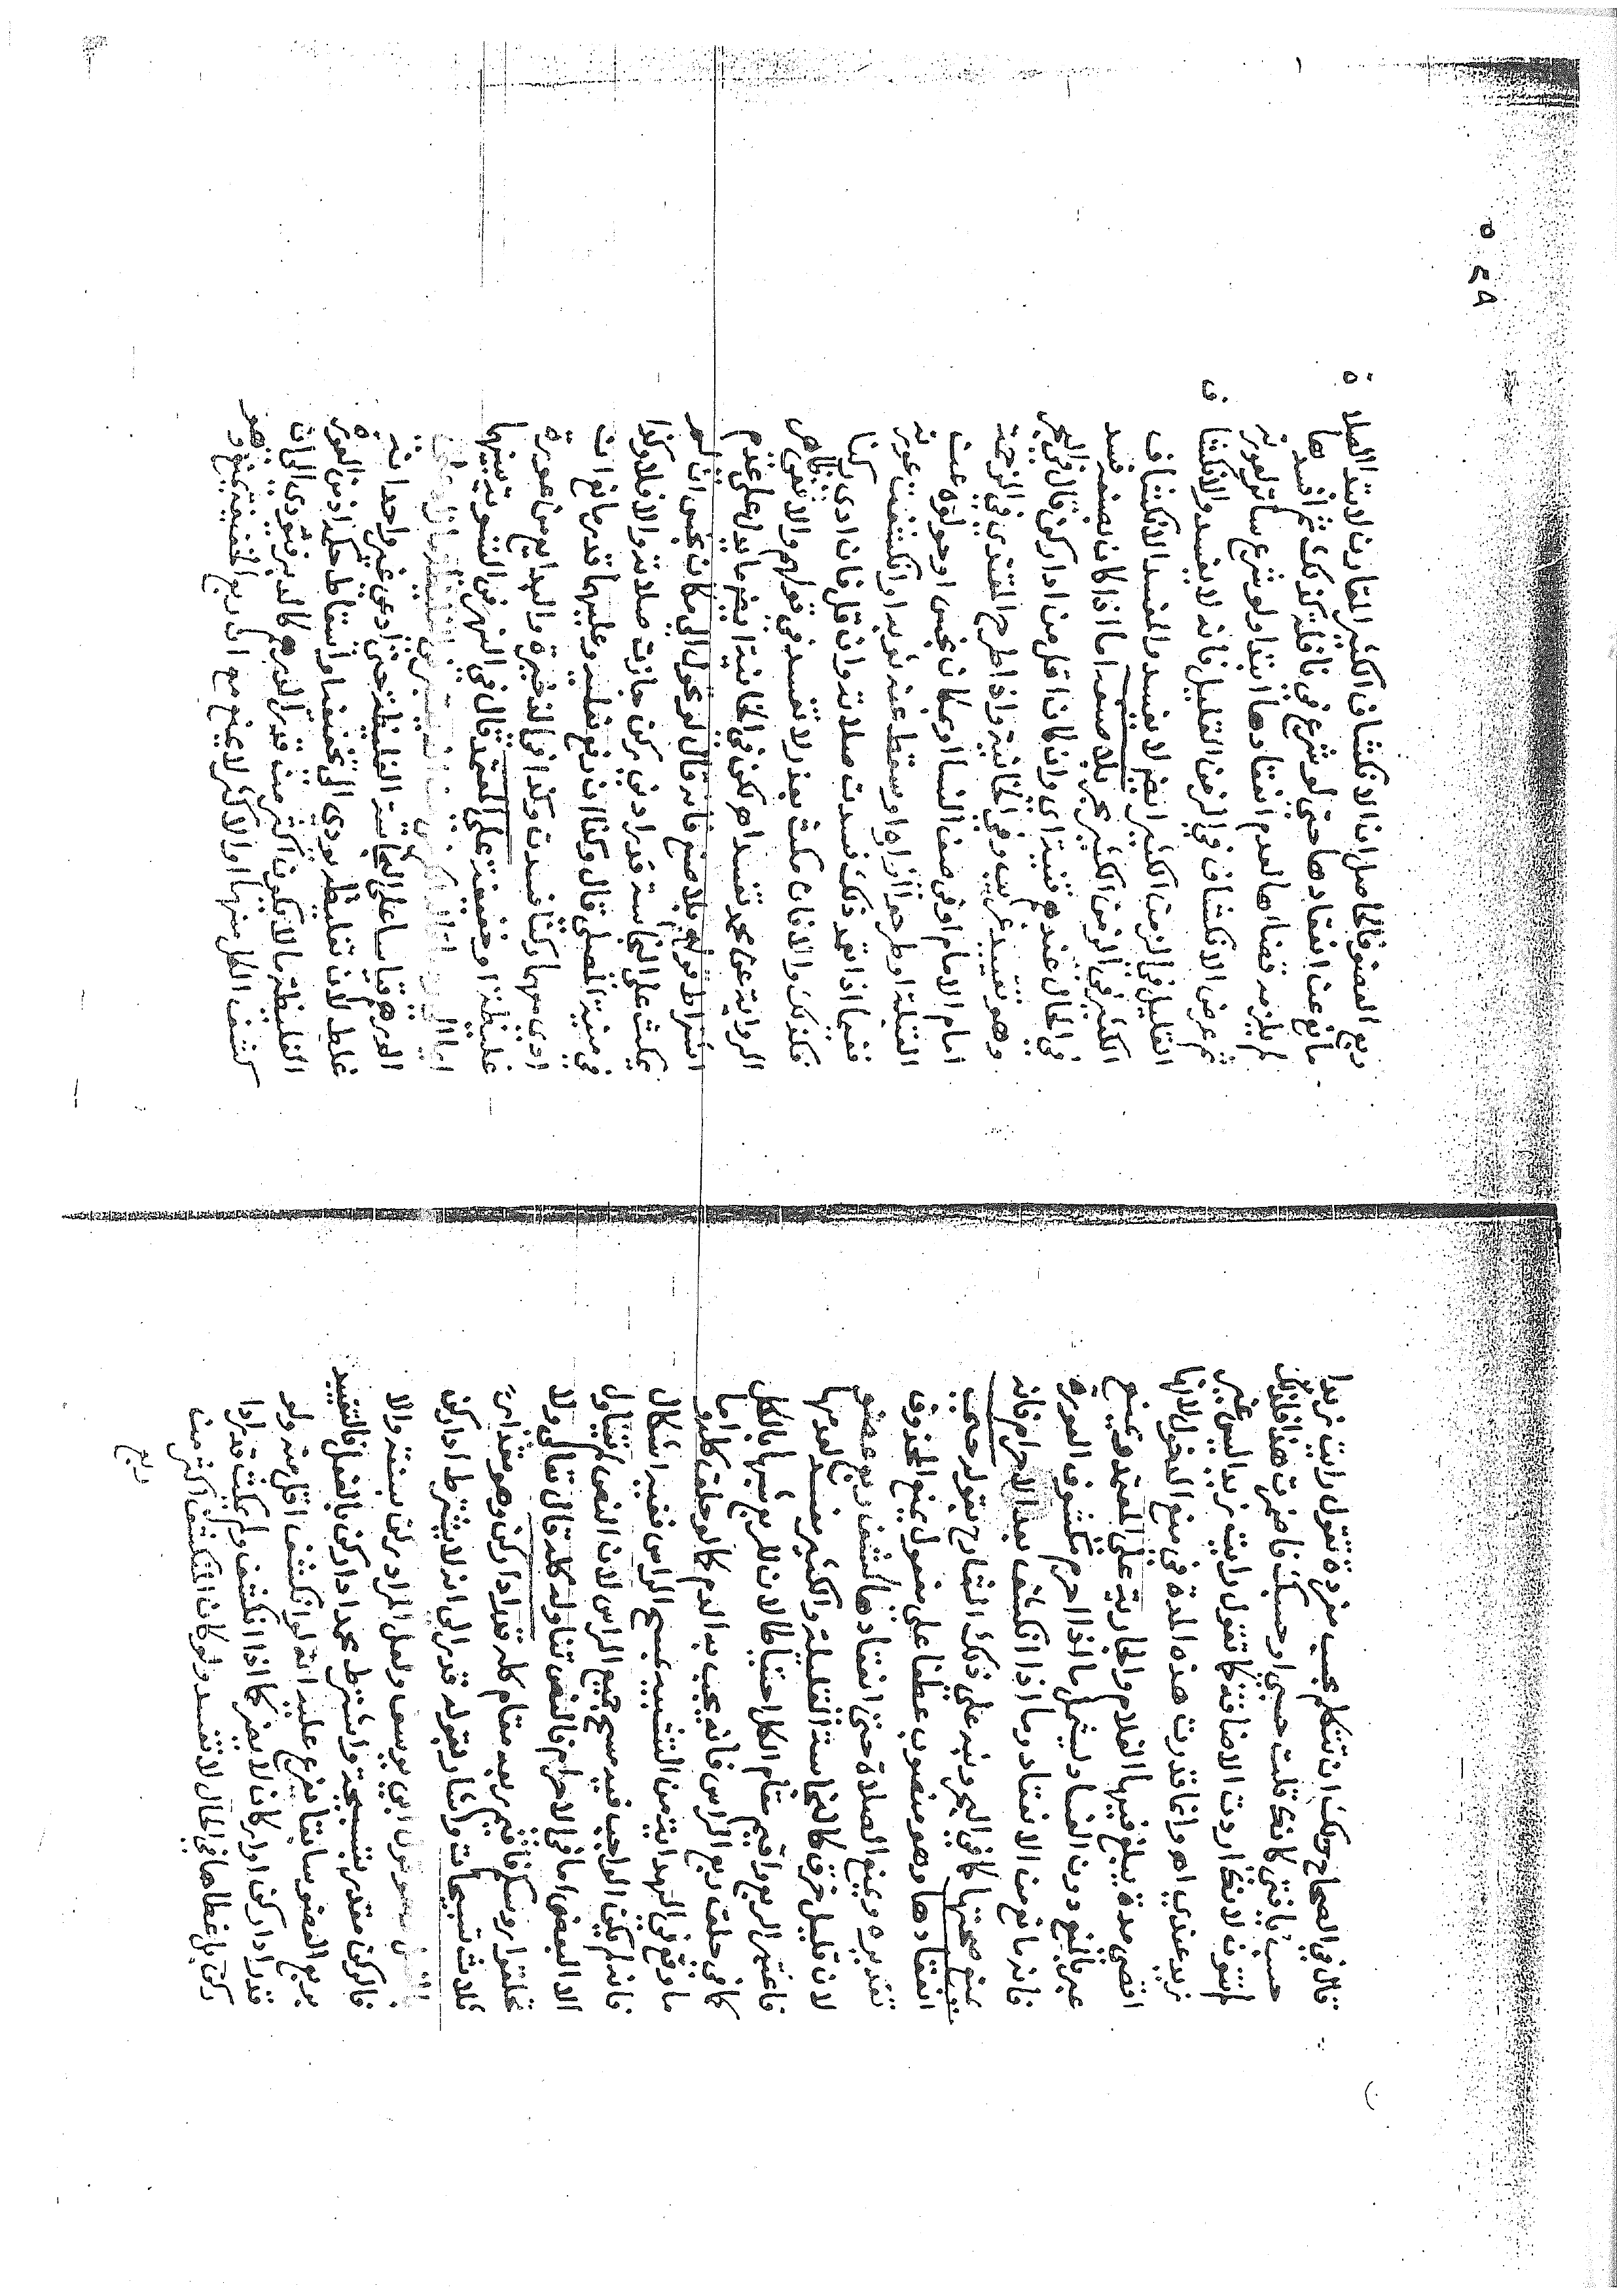 قال في الصحاح ويمكن ان تتكلم بحسب مفردة تقول رايت زيدا
حسب يا فتى كانك قلت حسبي او حسبك فاضمرت هذا فلذلك
لم تنون لانك اردت الاضافة كما تقول رايت زيدا ليس غير
تريد عندي اه وانما قدرت هذه المدة في منع الدخول لانها
اقصى مدة يبلغ فيها الغلام والجارية على المعتمد ويمنع
عبر بالمنع دون الفساد ليشمل ما اذا احرم مكشوف العورة
فانه مانع من الانعقاد وما اذا انكشف بعد الاحرام فانه
يمنع صحتها كما في البحر ونبه على ذلك الشارح بقوله حتى
انعقادها وهو منصوب عطفا على مفعول يمنع المحذوف
تقديره ويمنع الصلاة حتى انعقادها كشف ربع عضو
لان قليل خرق كالنجاسة القليلة والكثير مفسد لعدمها
فاعتبر الربع واقيم مقام الكل احتياطا لان للربع شبها بالكل
كما في حلق ربع الراس فانه يجب به الدم كما لو حلق كله اما
ما وقع في الهداية من التشبيه بمسح الراس ففيه اشكال
فانه لم يكن الواجب فيه مسح جميع الراس لان النص لم يتناول
الا البعض اما في الاحرام فالنص تناوله كله قال تعالى ولا
تحلقوا روسكم فاقيم ربعه مقام كله قدر اداركن وهو مقدار
ثلاث تسبيحات واشار بقوله قدر الى انه لا يشترط اداركن
قول ابي يوسف ولعل المراد ركن بسنته والا
فالركن مقدر بتسبيحة واشترط محمد اداركن بالفعل فالتقييد
بربع العضو سابقا تفرع عليه انه لو انكشف اقل منه ولو
قدر اداركن اواركان لا يضر كما اذا انكشف ولم يمكث قدر ادا
ركن بان غطاها في الحال لا تفسد ولو كان المنكشف اكثر من
ربع
ربع العضو فالحاصل ان الانكشاف الكثير المقارن لابتدا الصلاة
مانع عن انعقادها حتى لو شرع في نافلة كذلك ثم افسدها
لم يلزمه قضاها لعدم انعقادها ابتدا ولو شرع ساتر العورة
ثم عرض الانكشاف في الزمن القليل فانه لا يفسد والانكشاف
القليل في الزمن الكثير ايضا لا يفسد والمفسد الانكشاف
الكثير في الزمن الكثير بلا صنعه اما اذا كان بصنعه فسد
في الحال عندهم قنية اي وان كان اقل من اداركن قال في البحر
وهو تقييد غريب وفي الخانية واذا طرح المقتدي في الزحمة
امام الامام او في صف النسا او مكان نجس او حولوه عن
القبلة او طرحوا ازاره او سقط عنه ثوبه او انكشفت عورته
ففيما اذا تعمد ذلك فسدت صلاته وان قل فان ادى ركنا
فكذلك والا فان مكث بعذر لا تفسد في قولهم والا ففي ظاهر
الرواية عن محمد تفسد اه لكن في الخانية ايضا ما يدل على عدم
اشتراط قوله بلا صنعه فانه قال لو تحول الى مكان نجس ان لم
يمكث على النجاسة قدر ادنى ركن جازت صلاته والا فلا وكذا
في منية المصلي قال وكذا ان رفع نعليه وعليهما قذر مانع ان
ادى معهما ركنا فسدت وكذا في الذخيرة والبدايع من عورة
غليظة او خفيفة على المعتمد قال في النهر في التسوية بينهما
الدرهم قياسا على النجاسة الغليظة حتى ادعى غير واحد انه
غلط لان تغليظه يودي الى تخفيفه او اسقاط حكم اذ من العورة
الغليظة ما لا يكون اكثر منه قدر الدرهم كالدبر فيودي الى ان
كشف الكل منها او الاكثر لا يمنع مع ان ربع الخفيفة يمنع وهو